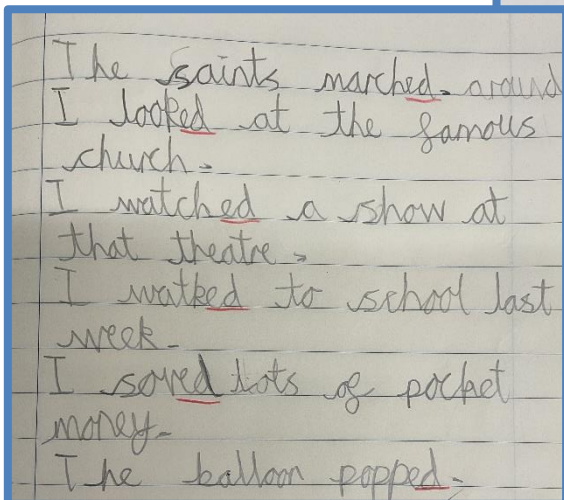 The saints marched. around
I looked at the famous
church.
I watched a show at
that theatre.
I walked to school last
week.
I saved lots of pocket
money.
The balloon popped.